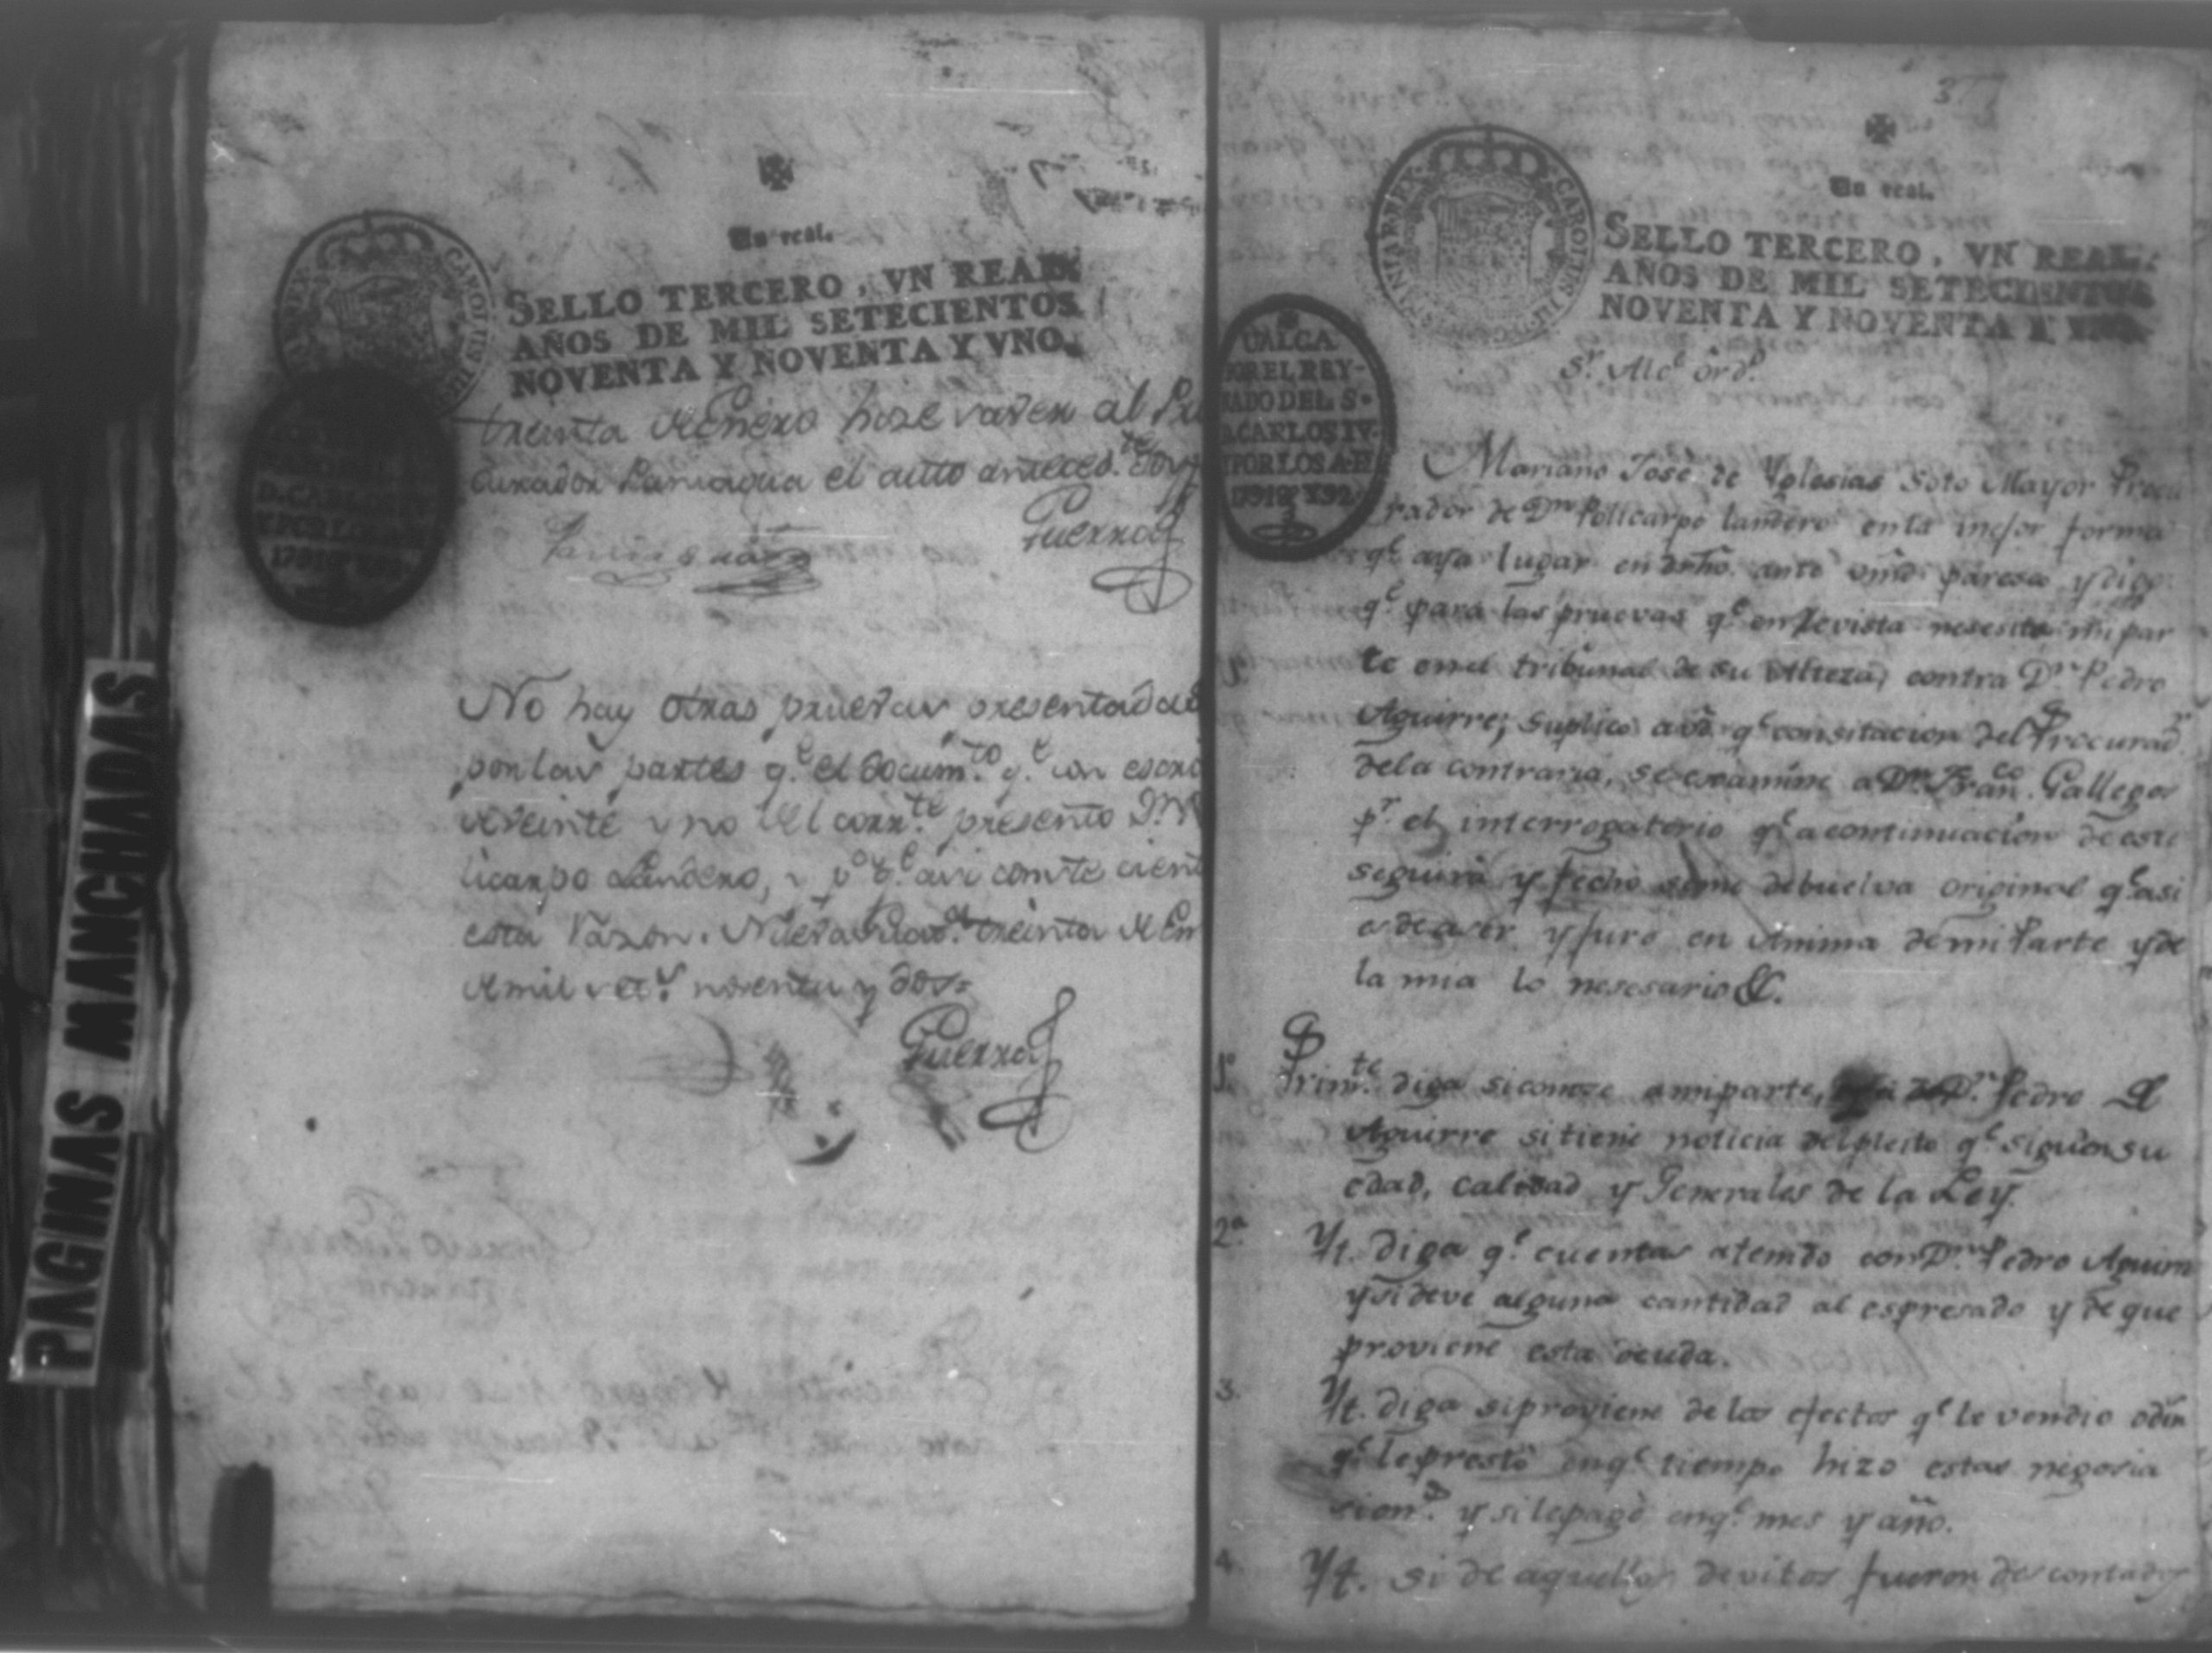 PAGINAS MANCHADAS
Un real.
SELLO TERCERO, VN REAL
AÑOS DE MIL SETECIENTOS
NOVENTA Y NOVENTA Y VNO.
treinta de Enero hize saver al
curador Paniagua el auto anteced.te
Paniagua
Guerra
No hay otras pruevas presentadas
por las partes q.e el Docum.to q.e con
de veinte y no del corr.te presentó D.n
licarpo Landero, y p.a q.e asi conste
esta Razon. treinta de En
de mil set.s noventa y dos=
Guerra
3
Un real.
SELLO TERCERO, VN REAL
AÑOS DE MIL SETECIENTOS
NOVENTA Y NOVENTA Y VNO
VALGA
POR EL REY-
NADO DEL S.
D. CARLOS IV.
Y POR LOS A.
1791 Y 92
S.r Alc.e ord.o
Mariano José de Yglesias Soto Mayor Procu
rador de D.n Policarpo landero en la mejor forma
q.e aya lugar en dro. ante vmd paresco y digo
q.e para las pruevas q.e en Revista nesesita mi par
te en el tribunal de su Alteza, contra D.n Pedro
Aguirre; suplico a vd. q.e con sitacion del Procurad.r
de la contraria, se examine a D.n Fran.co Gallegos
p.r el interrogatorio q.e a continuacion de este
seguirá y fecho se me debuelva original q.e asi
es de aser y juro en Anima de mi Parte y de
la mia lo nesesario &.
1.a Prim.te diga si conose a mi parte, D.n Pedro
Aguirre si tiene noticia del pleito q.e siguen su
edad, calidad y Generales de la Ley.
2.a Yt. diga q.e cuentas a tenido con D.n Pedro Aguirre
y si deve alguna cantidad al espresado y de que
proviene esta deuda.
3. Yt. diga si proviene de los efectos q.e le vendio o din
q.e le prestó en q.e tiempo hizo estas negosia
sion.s y si le pagó en q.e mes y año.
4. Yt. si de aquellos devitos fueron descontados